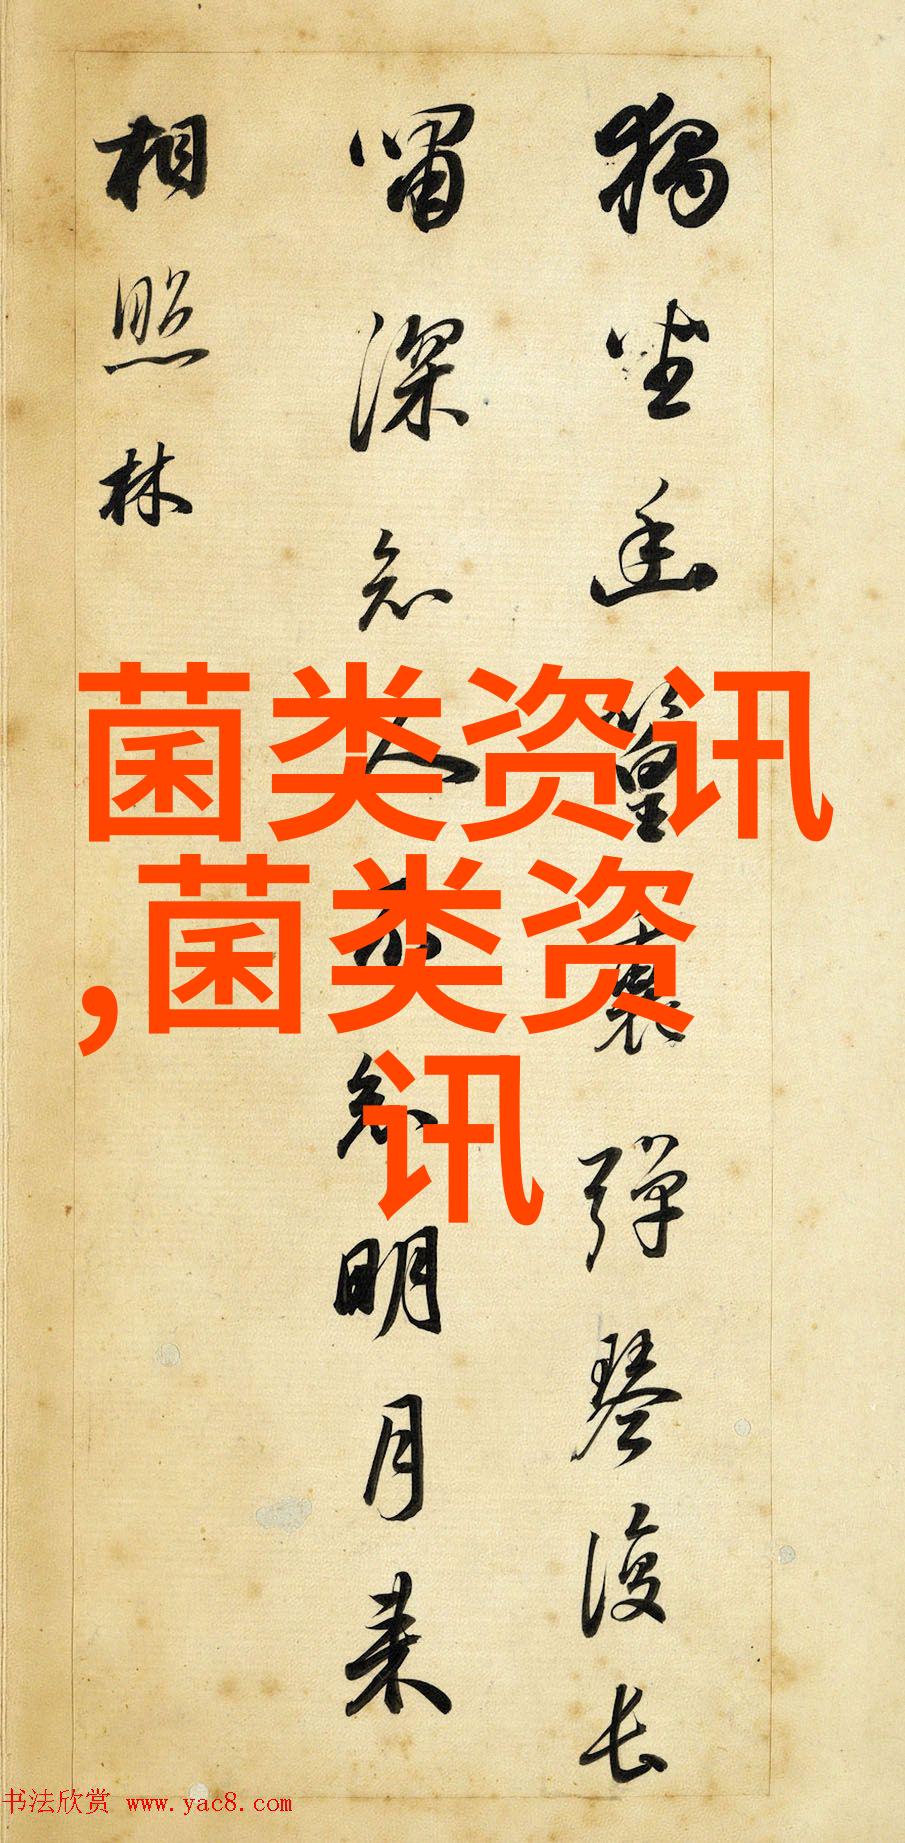 獨坐幽篁裏彈琴復長
嘯深知人不知明月来
相照林
菌类资讯
,菌类资
讯
书法欣赏 www.yac8.com